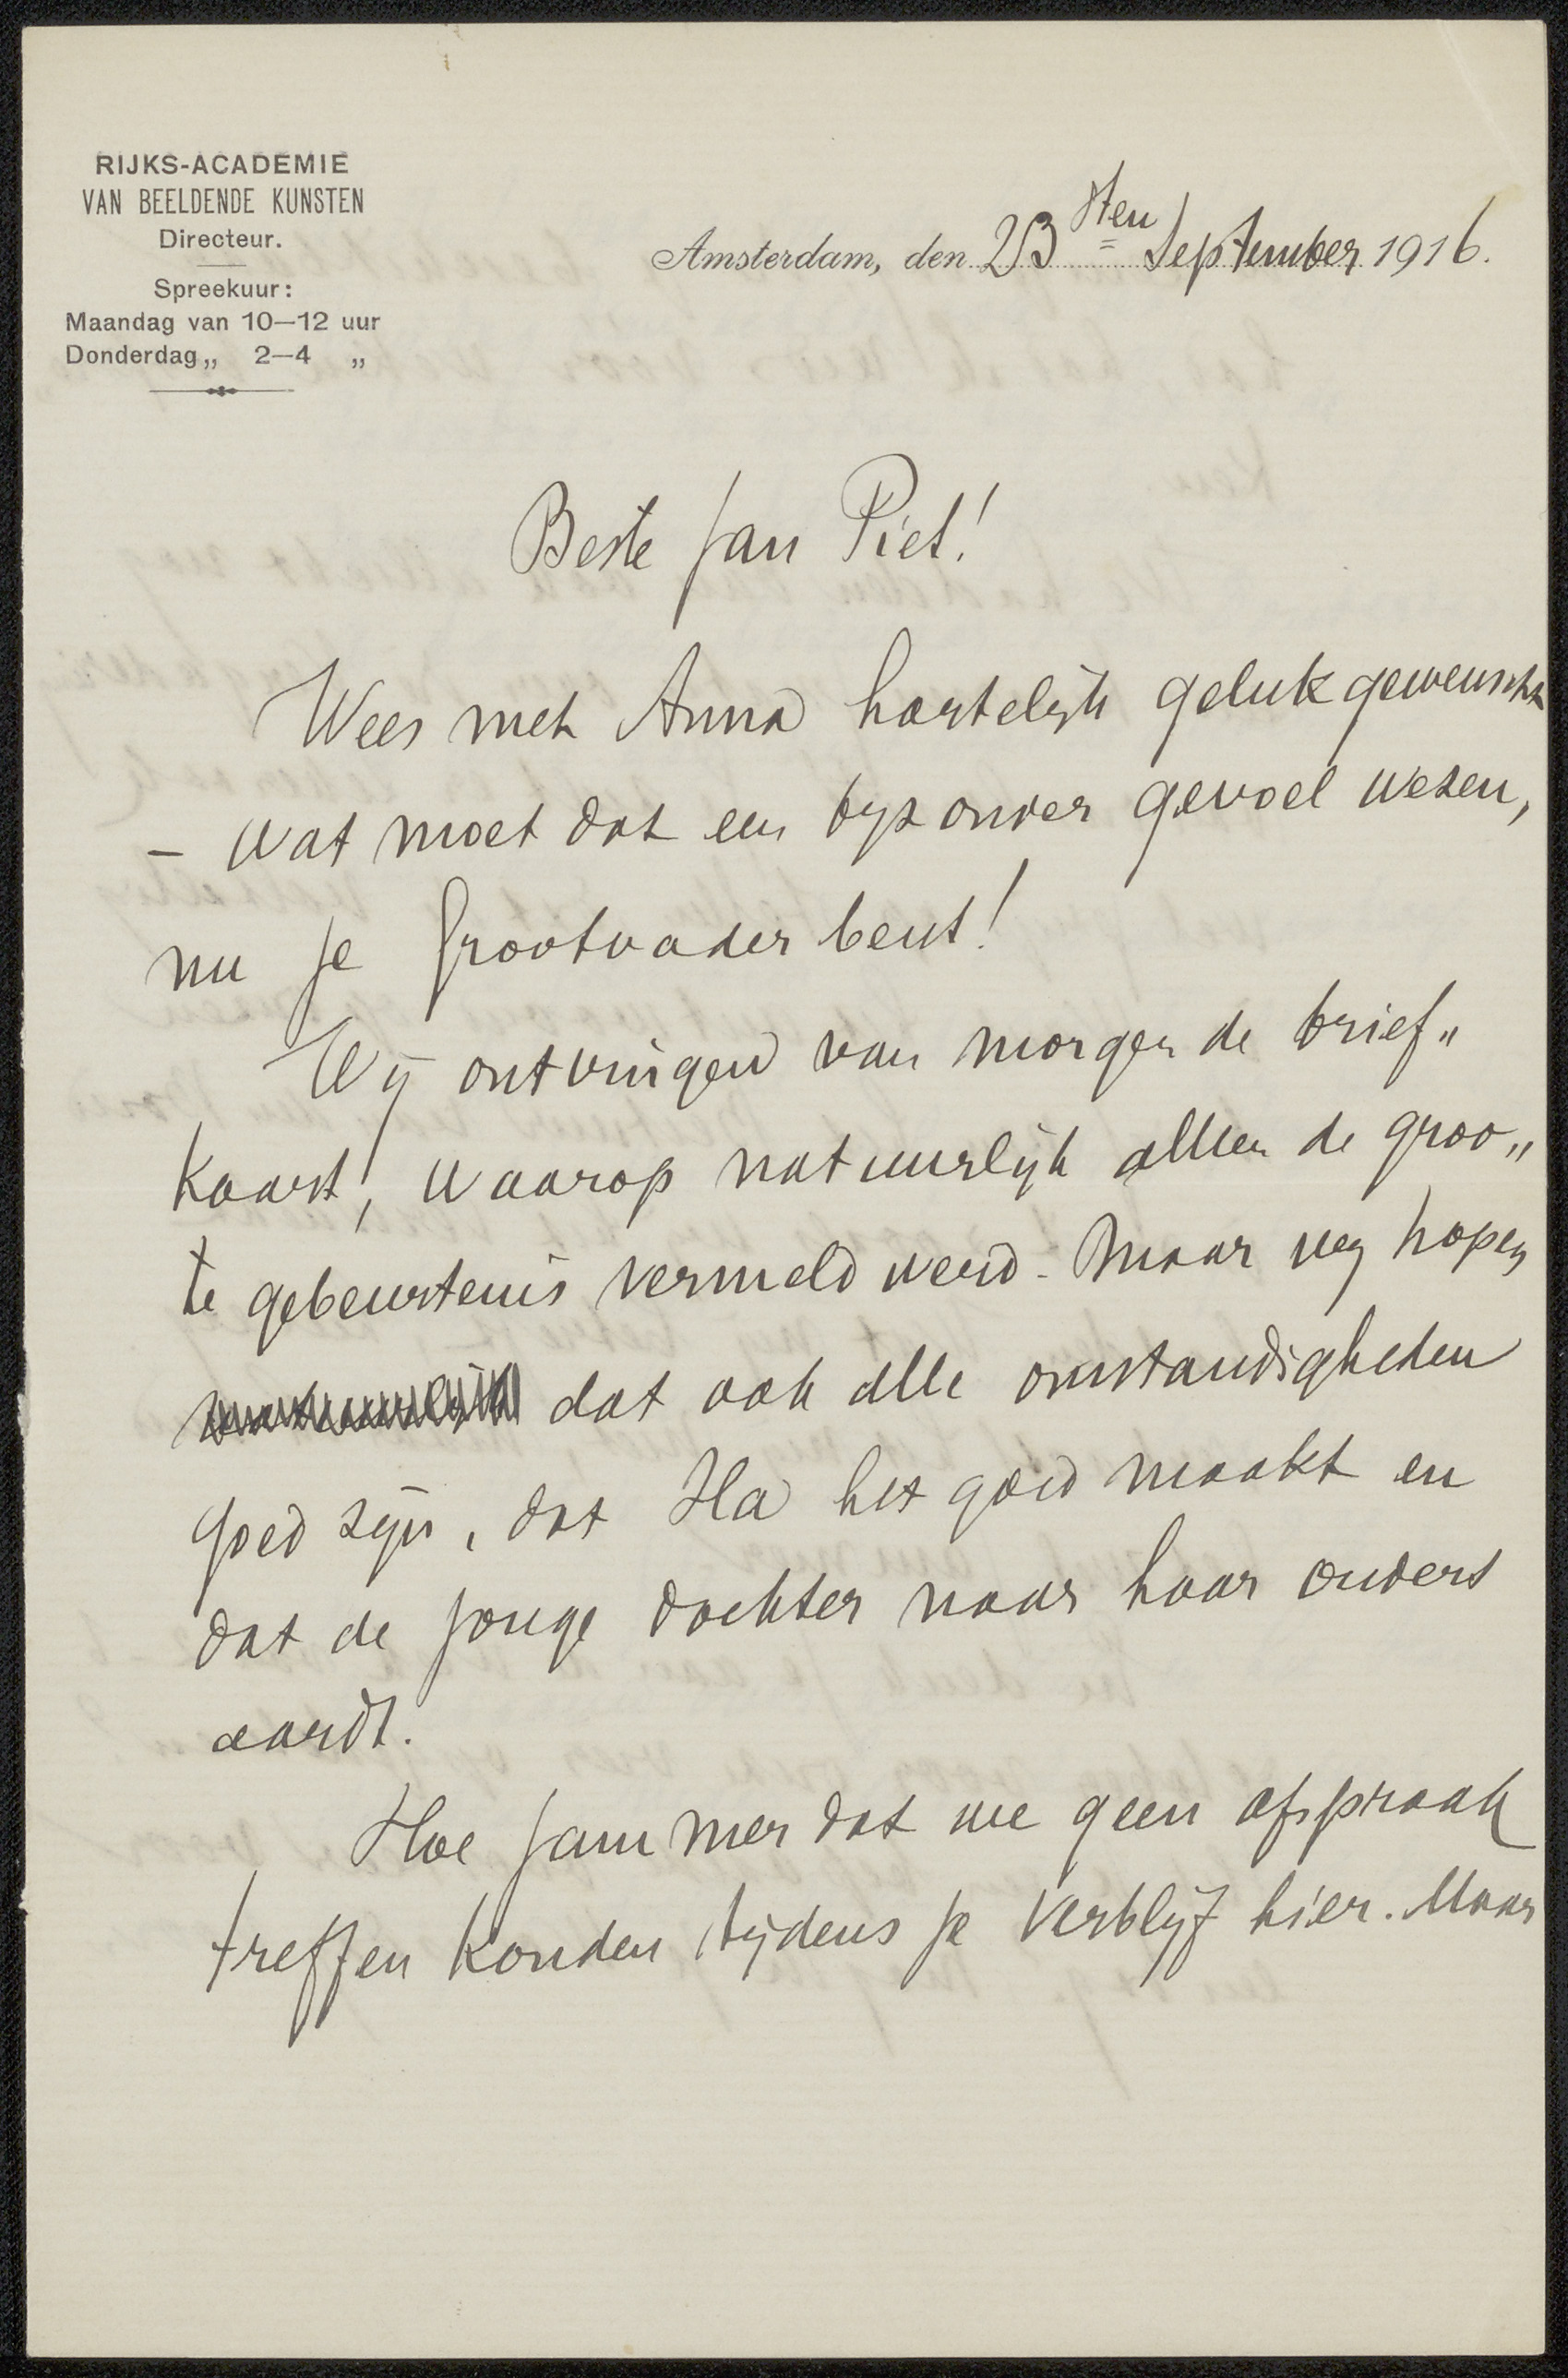 RIJKS-ACADEMIE
VAN BEELDENDE KUNSTEN
Directeur.
Spreekuur:
Maandag van 10—12 uur
Donderdag „ 2—4 „
Amsterdam, den 23sten September 1916.
Beste Jan Piet!
Wees met Anna hartelijk gelukgewenscht
– wat moet dat een byzonder gevoel wezen,
nu je Grootvader bent!
Wij ontvingen van morgen de brief„
kaart, waarop natuurlijk alleen de groo„
te gebeurtenis vermeld werd. Maar wy hopen
dat ook alle omstandigheden
goed zyn, dat Ha het goed maakt en
dat de jonge dochter naar haar ouders
aardt.
Hoe jammer dat we geen afspraak
treffen konden tijdens je verblyf hier. Maar